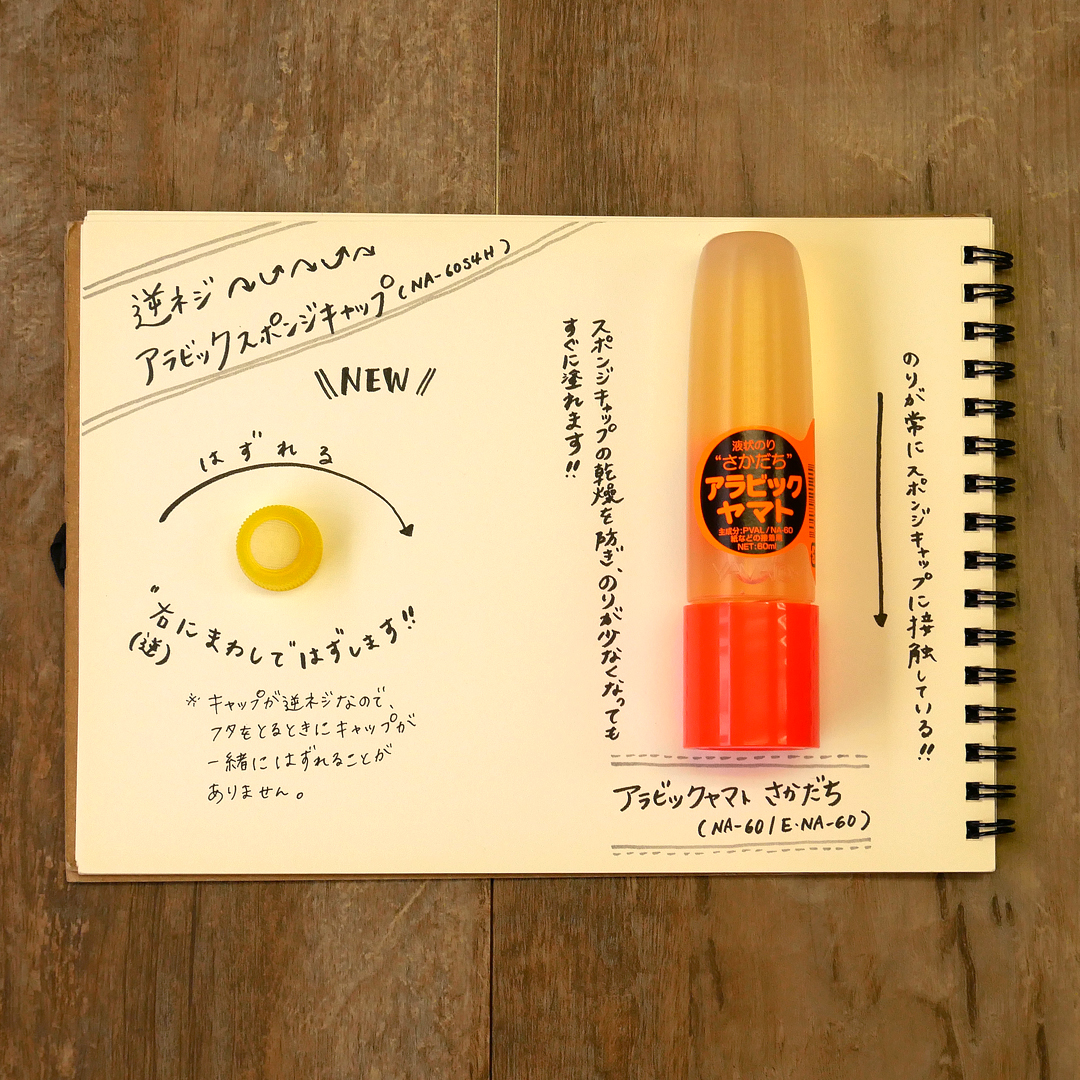 逆ネジ
アラビックスポンジキャップ(NA-60S4H)
\\NEW//
はずれる
"右にまわしてはずします!!
(逆)
※キャップが逆ネジなので、
フタをとるときにキャップが
一緒にはずれることが
ありません。
のりが常にスポンジキャップに接触している!!
スポンジキャップの乾燥を防ぎ、のりが少なくなっても
すぐに塗れます!!
液状のり
“さかだち”
アラビック
ヤマト
主成分:PVAL/NA-60
紙などの接着用
NET:60ml
アラビックヤマト さかだち
(NA-60/E・NA-60)